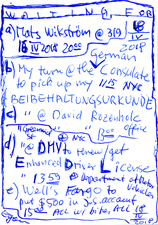 WAITING, FOR
a) Mats Wikström @ 319
18 IV 2018 20:00
18 IV 2018
German
b) My turn @ the Consulate
to pick up my in NYC
BEIBEHALTUNGSURKUNDE
c) " @ David Rozenhole
office
d) " @ DMV to renew/get
Enhanced Driver License
" 1359 @ Department of Motor
Vehicles
e) Well's Fargo to
put $500 in s. account